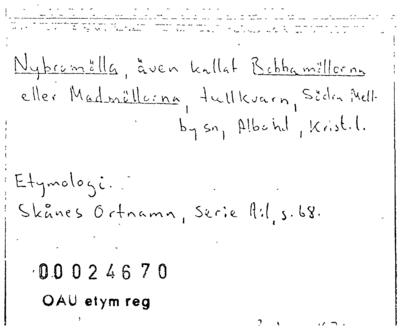 Nybromölla, även kallat Rebbamöllorna
eller Madmöllorna, tullkvarn, Södra Mell-
by sn, Albo hd, Krist. l.
Etymologi.
Skånes Ortnamn, serie A:1, s. 68.
00024670
OAU etym reg